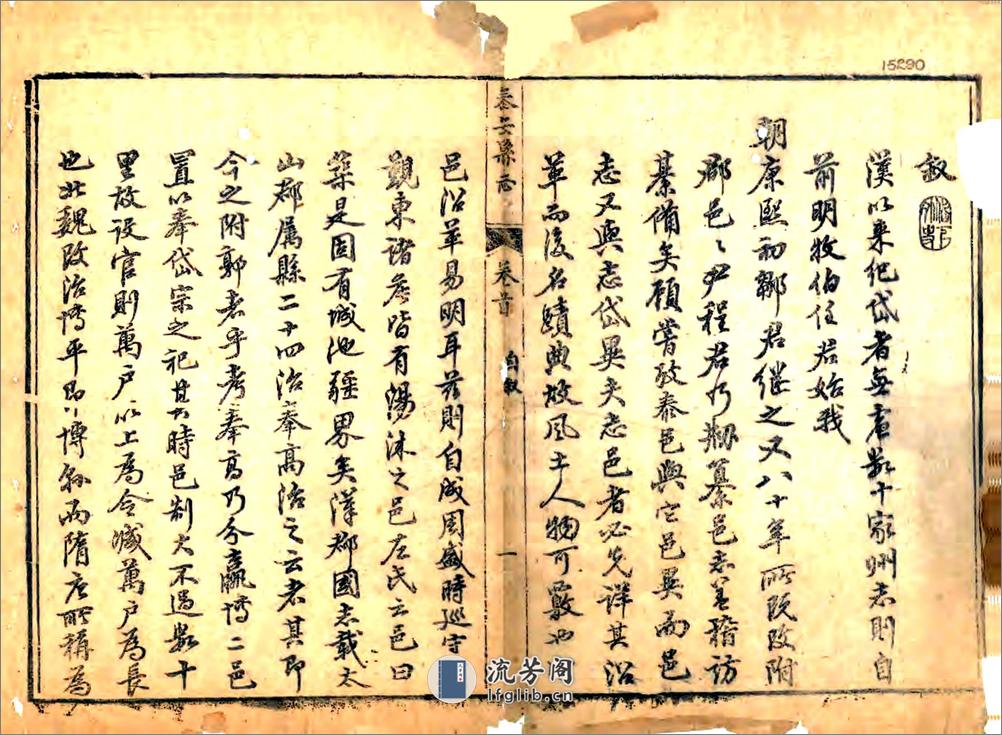 15290
叙
漢以來紀岱者無慮數十家州志則自
前明牧伯任君始我
朝康熙初鄒君継之又八十年所既改附
郡邑〻尹程君乃剏纂邑志羞稽訪
綦備矣顧嘗攷泰邑與它邑異而邑
志又與志岱異夫志邑者必先詳其沿
革而後名蹟典故風土人物可覈也
泰安縣志
卷首
自叙
一
邑沿革易明耳兹則自成周盛時巡守
觀東諸矦皆有湯沐之邑左氏云邑曰
築是固有城池疆界矣漢郡國志載太
山郡属縣二十四治奉高治之云者其即
今之附郭者乎考奉高乃分嬴博二邑
置以奉岱宗之祀其時邑制大不過數十
里故設官則萬户以上為令減萬户為長
也北魏改治博平即博縣而隋唐所稱為
流芳阁
lfglib.cn